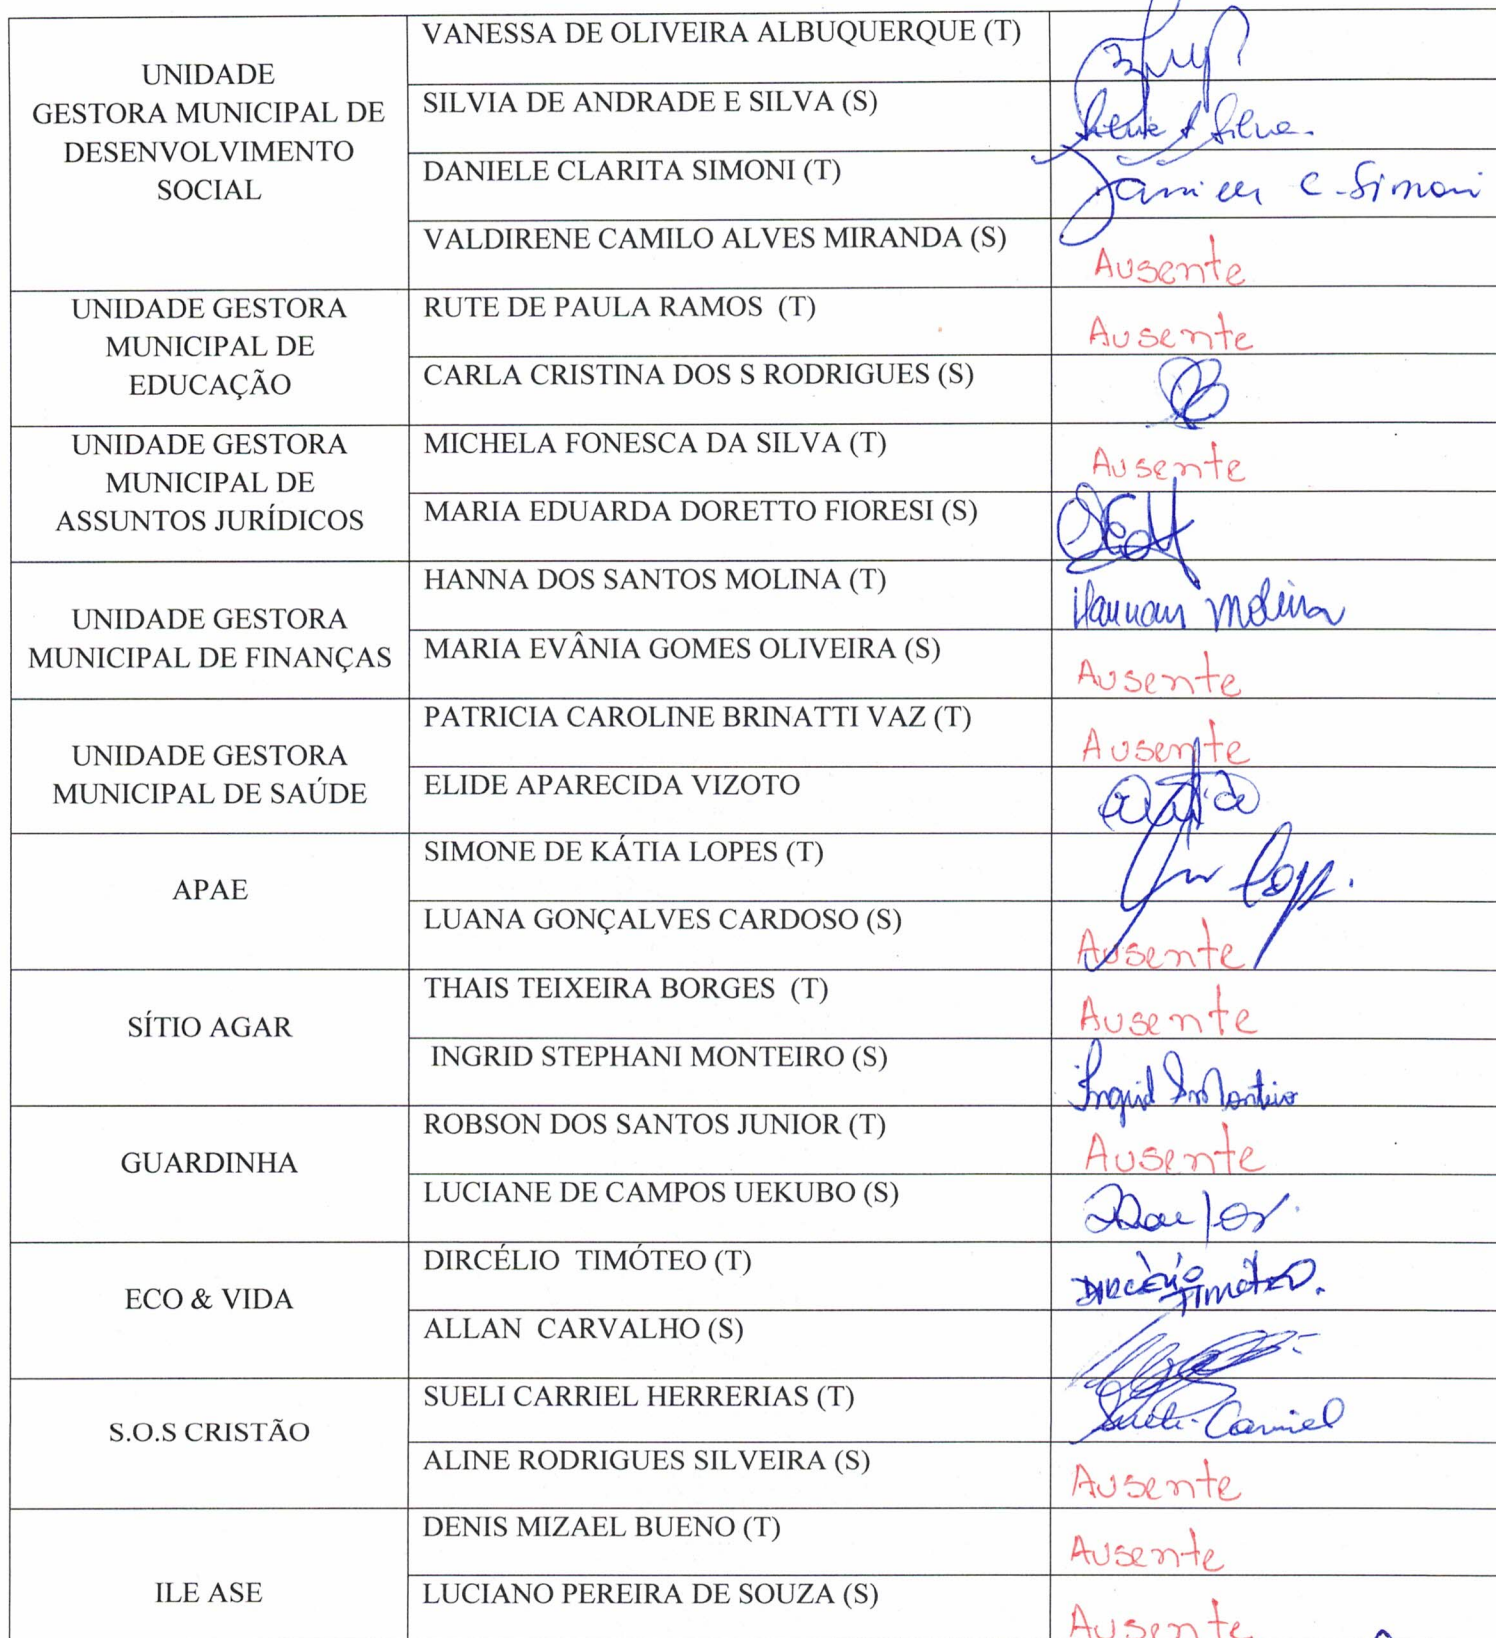 UNIDADE
GESTORA MUNICIPAL DE
DESENVOLVIMENTO
SOCIAL
VANESSA DE OLIVEIRA ALBUQUERQUE (T)
SILVIA DE ANDRADE E SILVA (S)
Silva.
DANIELE CLARITA SIMONI (T)
C. Simoni
VALDIRENE CAMILO ALVES MIRANDA (S)
Ausente
UNIDADE GESTORA
MUNICIPAL DE
EDUCAÇÃO
RUTE DE PAULA RAMOS (T)
Ausente
CARLA CRISTINA DOS S RODRIGUES (S)
UNIDADE GESTORA
MUNICIPAL DE
ASSUNTOS JURÍDICOS
MICHELA FONESCA DA SILVA (T)
Ausente
MARIA EDUARDA DORETTO FIORESI (S)
UNIDADE GESTORA
MUNICIPAL DE FINANÇAS
HANNA DOS SANTOS MOLINA (T)
Molina
MARIA EVÂNIA GOMES OLIVEIRA (S)
Ausente
UNIDADE GESTORA
MUNICIPAL DE SAÚDE
PATRICIA CAROLINE BRINATTI VAZ (T)
Ausente
ELIDE APARECIDA VIZOTO
APAE
SIMONE DE KÁTIA LOPES (T)
LUANA GONÇALVES CARDOSO (S)
Ausente
SÍTIO AGAR
THAIS TEIXEIRA BORGES (T)
Ausente
INGRID STEPHANI MONTEIRO (S)
Ingrid S Monteiro
GUARDINHA
ROBSON DOS SANTOS JUNIOR (T)
Ausente
LUCIANE DE CAMPOS UEKUBO (S)
ECO & VIDA
DIRCÉLIO TIMÓTEO (T)
DIRCÉLIO TIMÓTEO.
ALLAN CARVALHO (S)
S.O.S CRISTÃO
SUELI CARRIEL HERRERIAS (T)
Sueli Carriel
ALINE RODRIGUES SILVEIRA (S)
Ausente
ILE ASE
DENIS MIZAEL BUENO (T)
Ausente
LUCIANO PEREIRA DE SOUZA (S)
Ausente